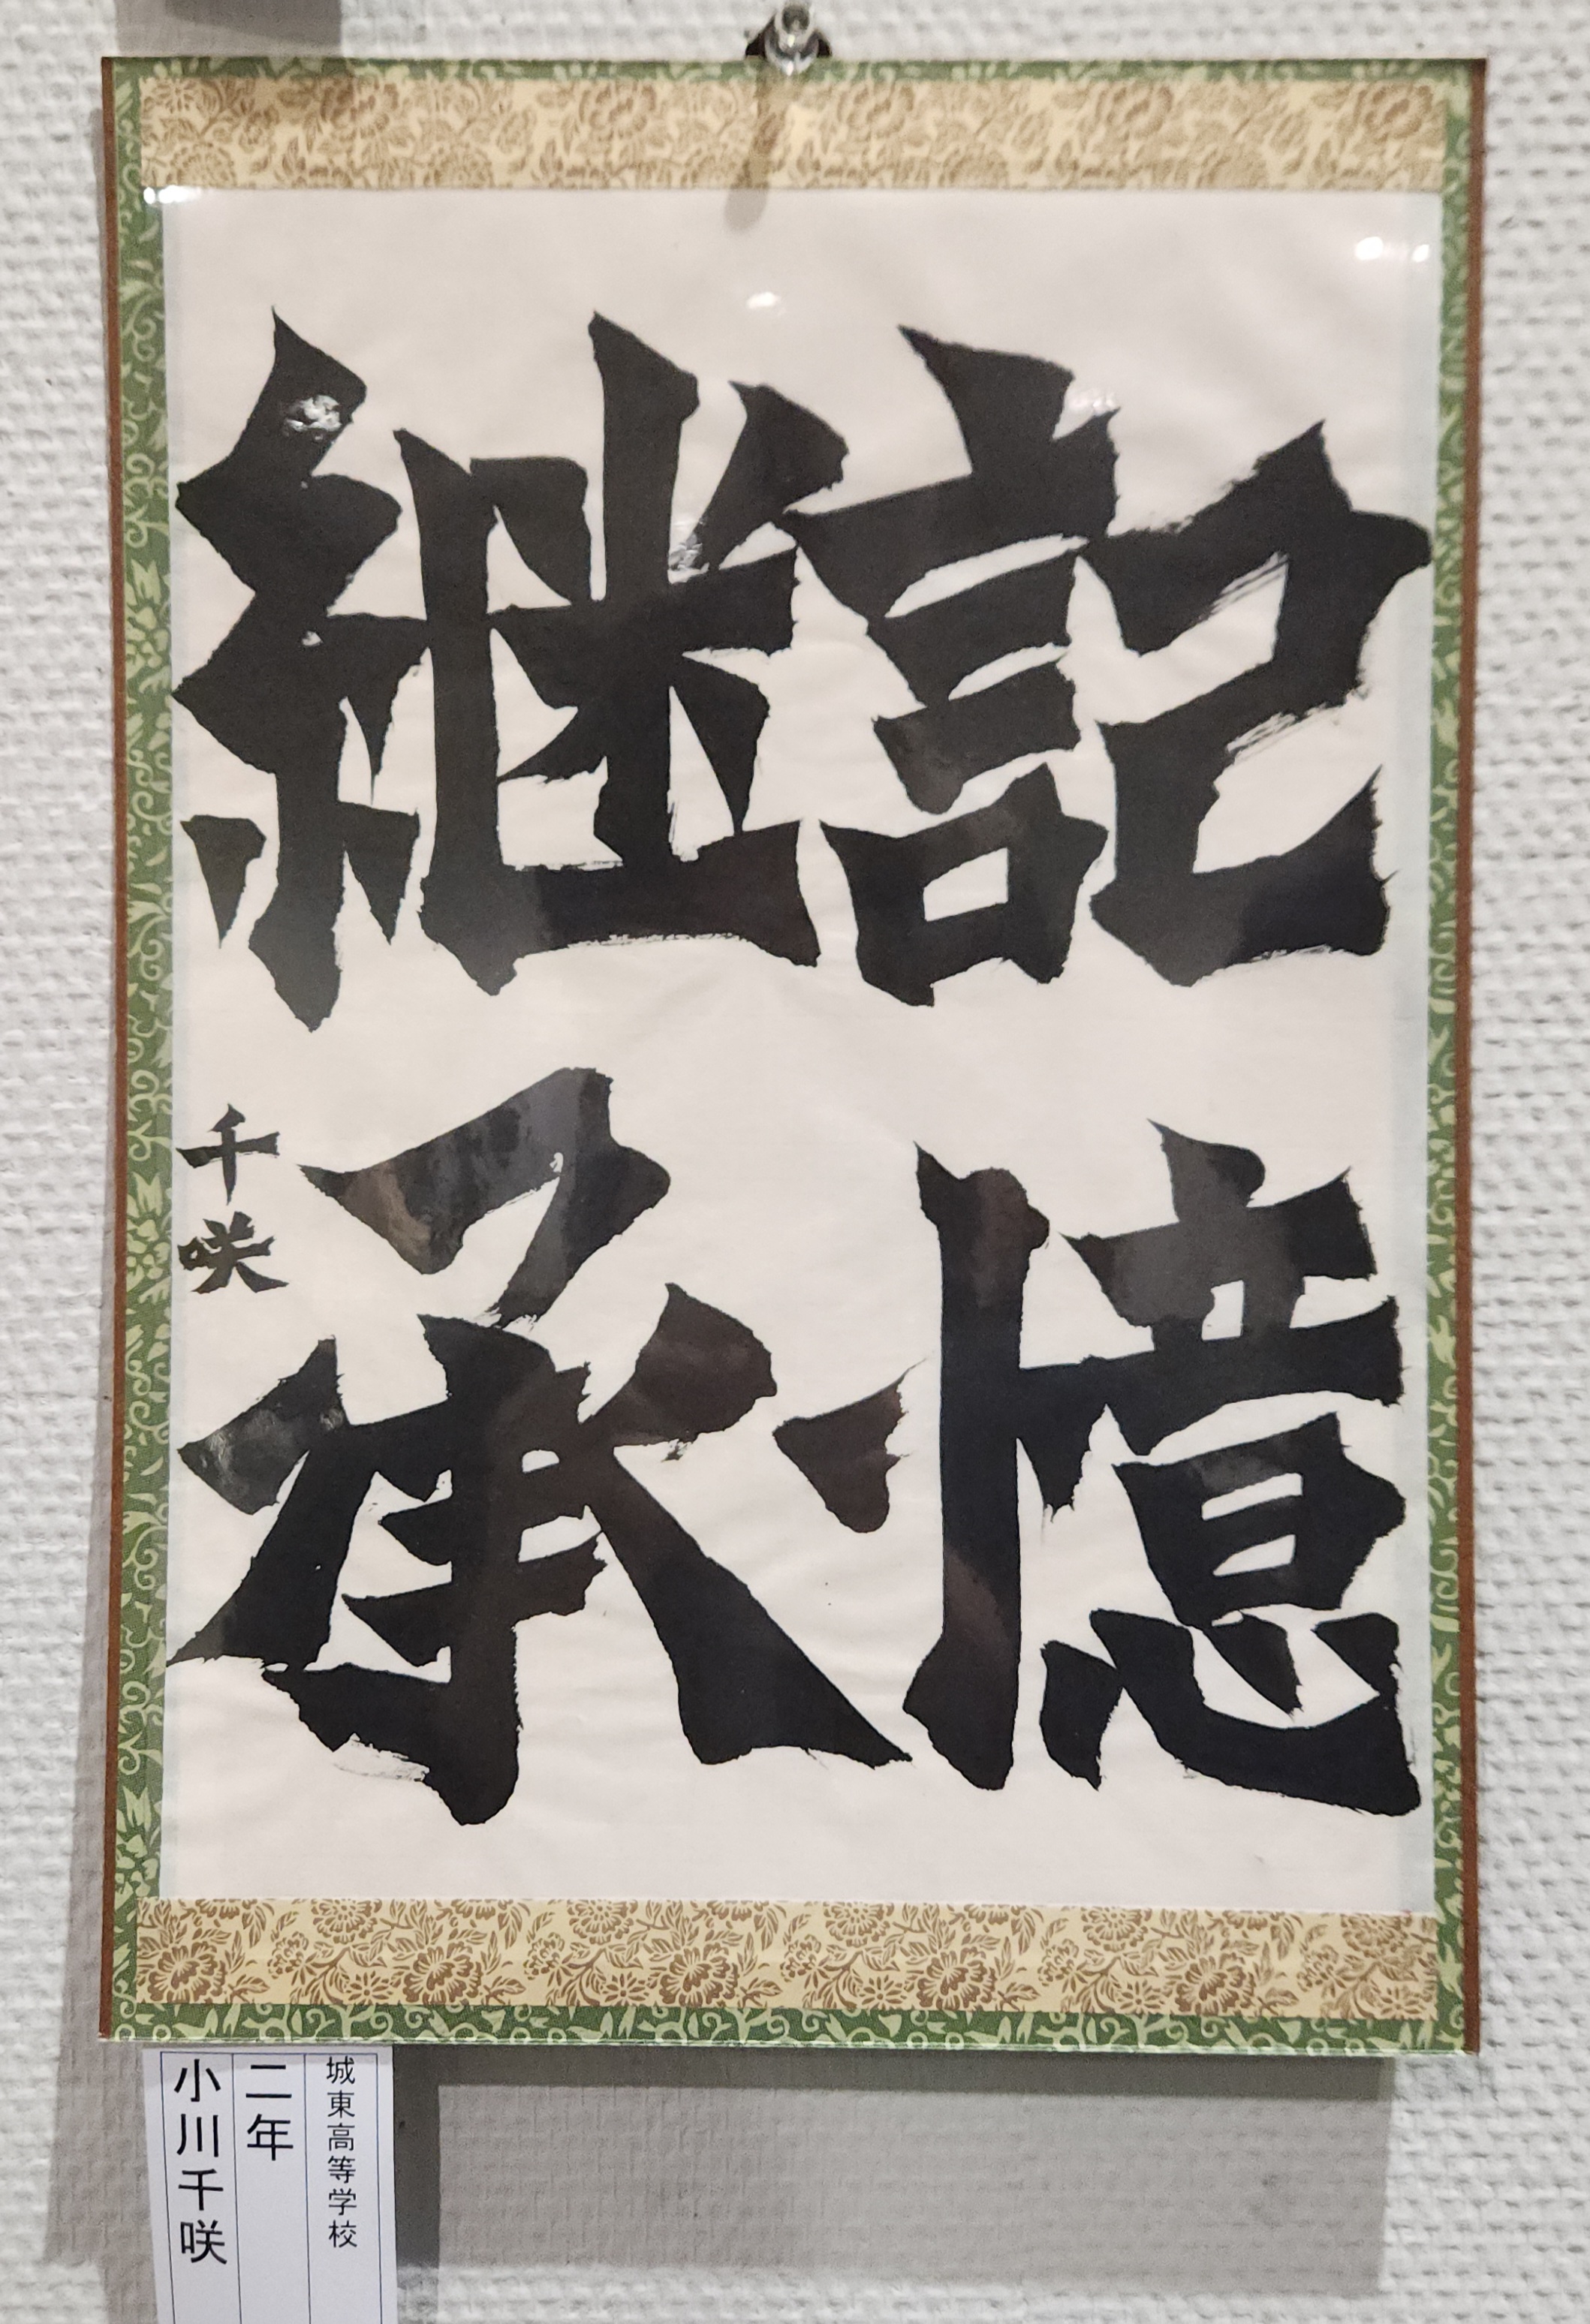 記憶
継承
千咲
城東高等学校
二年
小川千咲